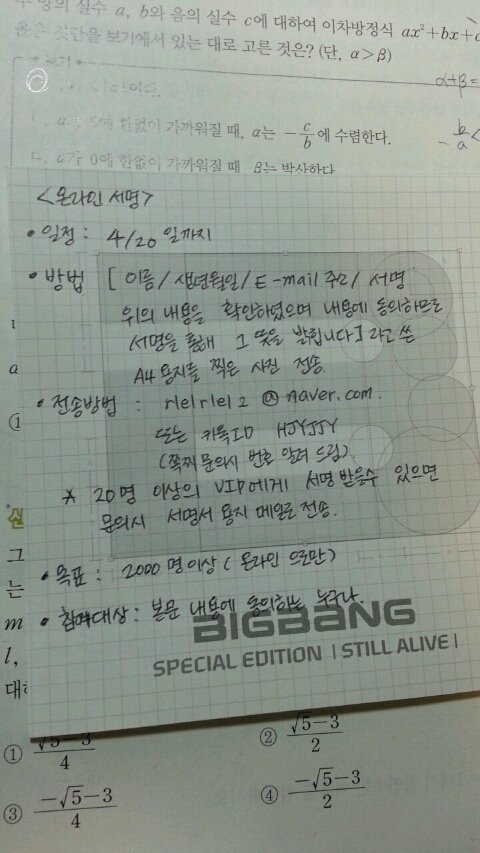 양의 실수 a, b와 음의 실수 c에 대하여 이차방정식 ax²+bx+c
옳은 것만을 보기에서 있는 대로 고른 것은? (단, α>β)
보기
α+β=
ㄴ. a가 0에 한없이 가까워질 때, α는 -c/b에 수렴한다.
- b/a <
ㄷ. a가 0에 한없이 가까워질 때 β는 발산한다
<온라인 서명>
• 일정 : 4/20 일까지
• 방법 [ 이름 / 생년월일 / E-mail 주소 / 서명
위의 내용을 확인하였으며 내용에 동의하므로
서명을 통해 그 뜻을 밝힙니다] 라고 쓴
A4 용지를 찍은 사진 전송.
• 전송방법 : rlelrlel2 @ naver.com.
또는 카톡ID HJYJJY
(쪽찌 문의시 번호 알려 드림)
* 20명 이상의 VIP에게 서명 받을수 있으면
문의시 서명서 용지 메일로 전송.
• 목표 : 2000 명이상 ( 온라인 으로만)
• 참여대상 : 본문 내용에 동의하는 누구나.
BIGBANG
SPECIAL EDITION | STILL ALIVE |
a
①
실
그
는
m
l,
대
① √5-3/4
② √5-3/2
③ -√5-3/4
④ -√5-3/2